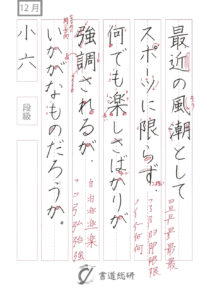 12月
小六
段級
最近の風潮として
スポーツに限らず、
何でも楽しさばかりが
強調されるが、
いかがなものだろうか。
書道総研